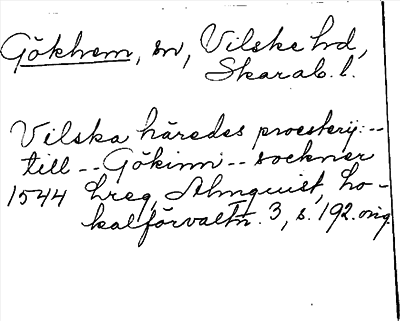 Gökhem, sn, Vilske hd,
Skarab. l.
Vilska häredes proesterij: --
till -- Gökinni -- sockner
1544 hreg, Almquist, Lo-
kalförvaltn. 3, s. 192. orig.